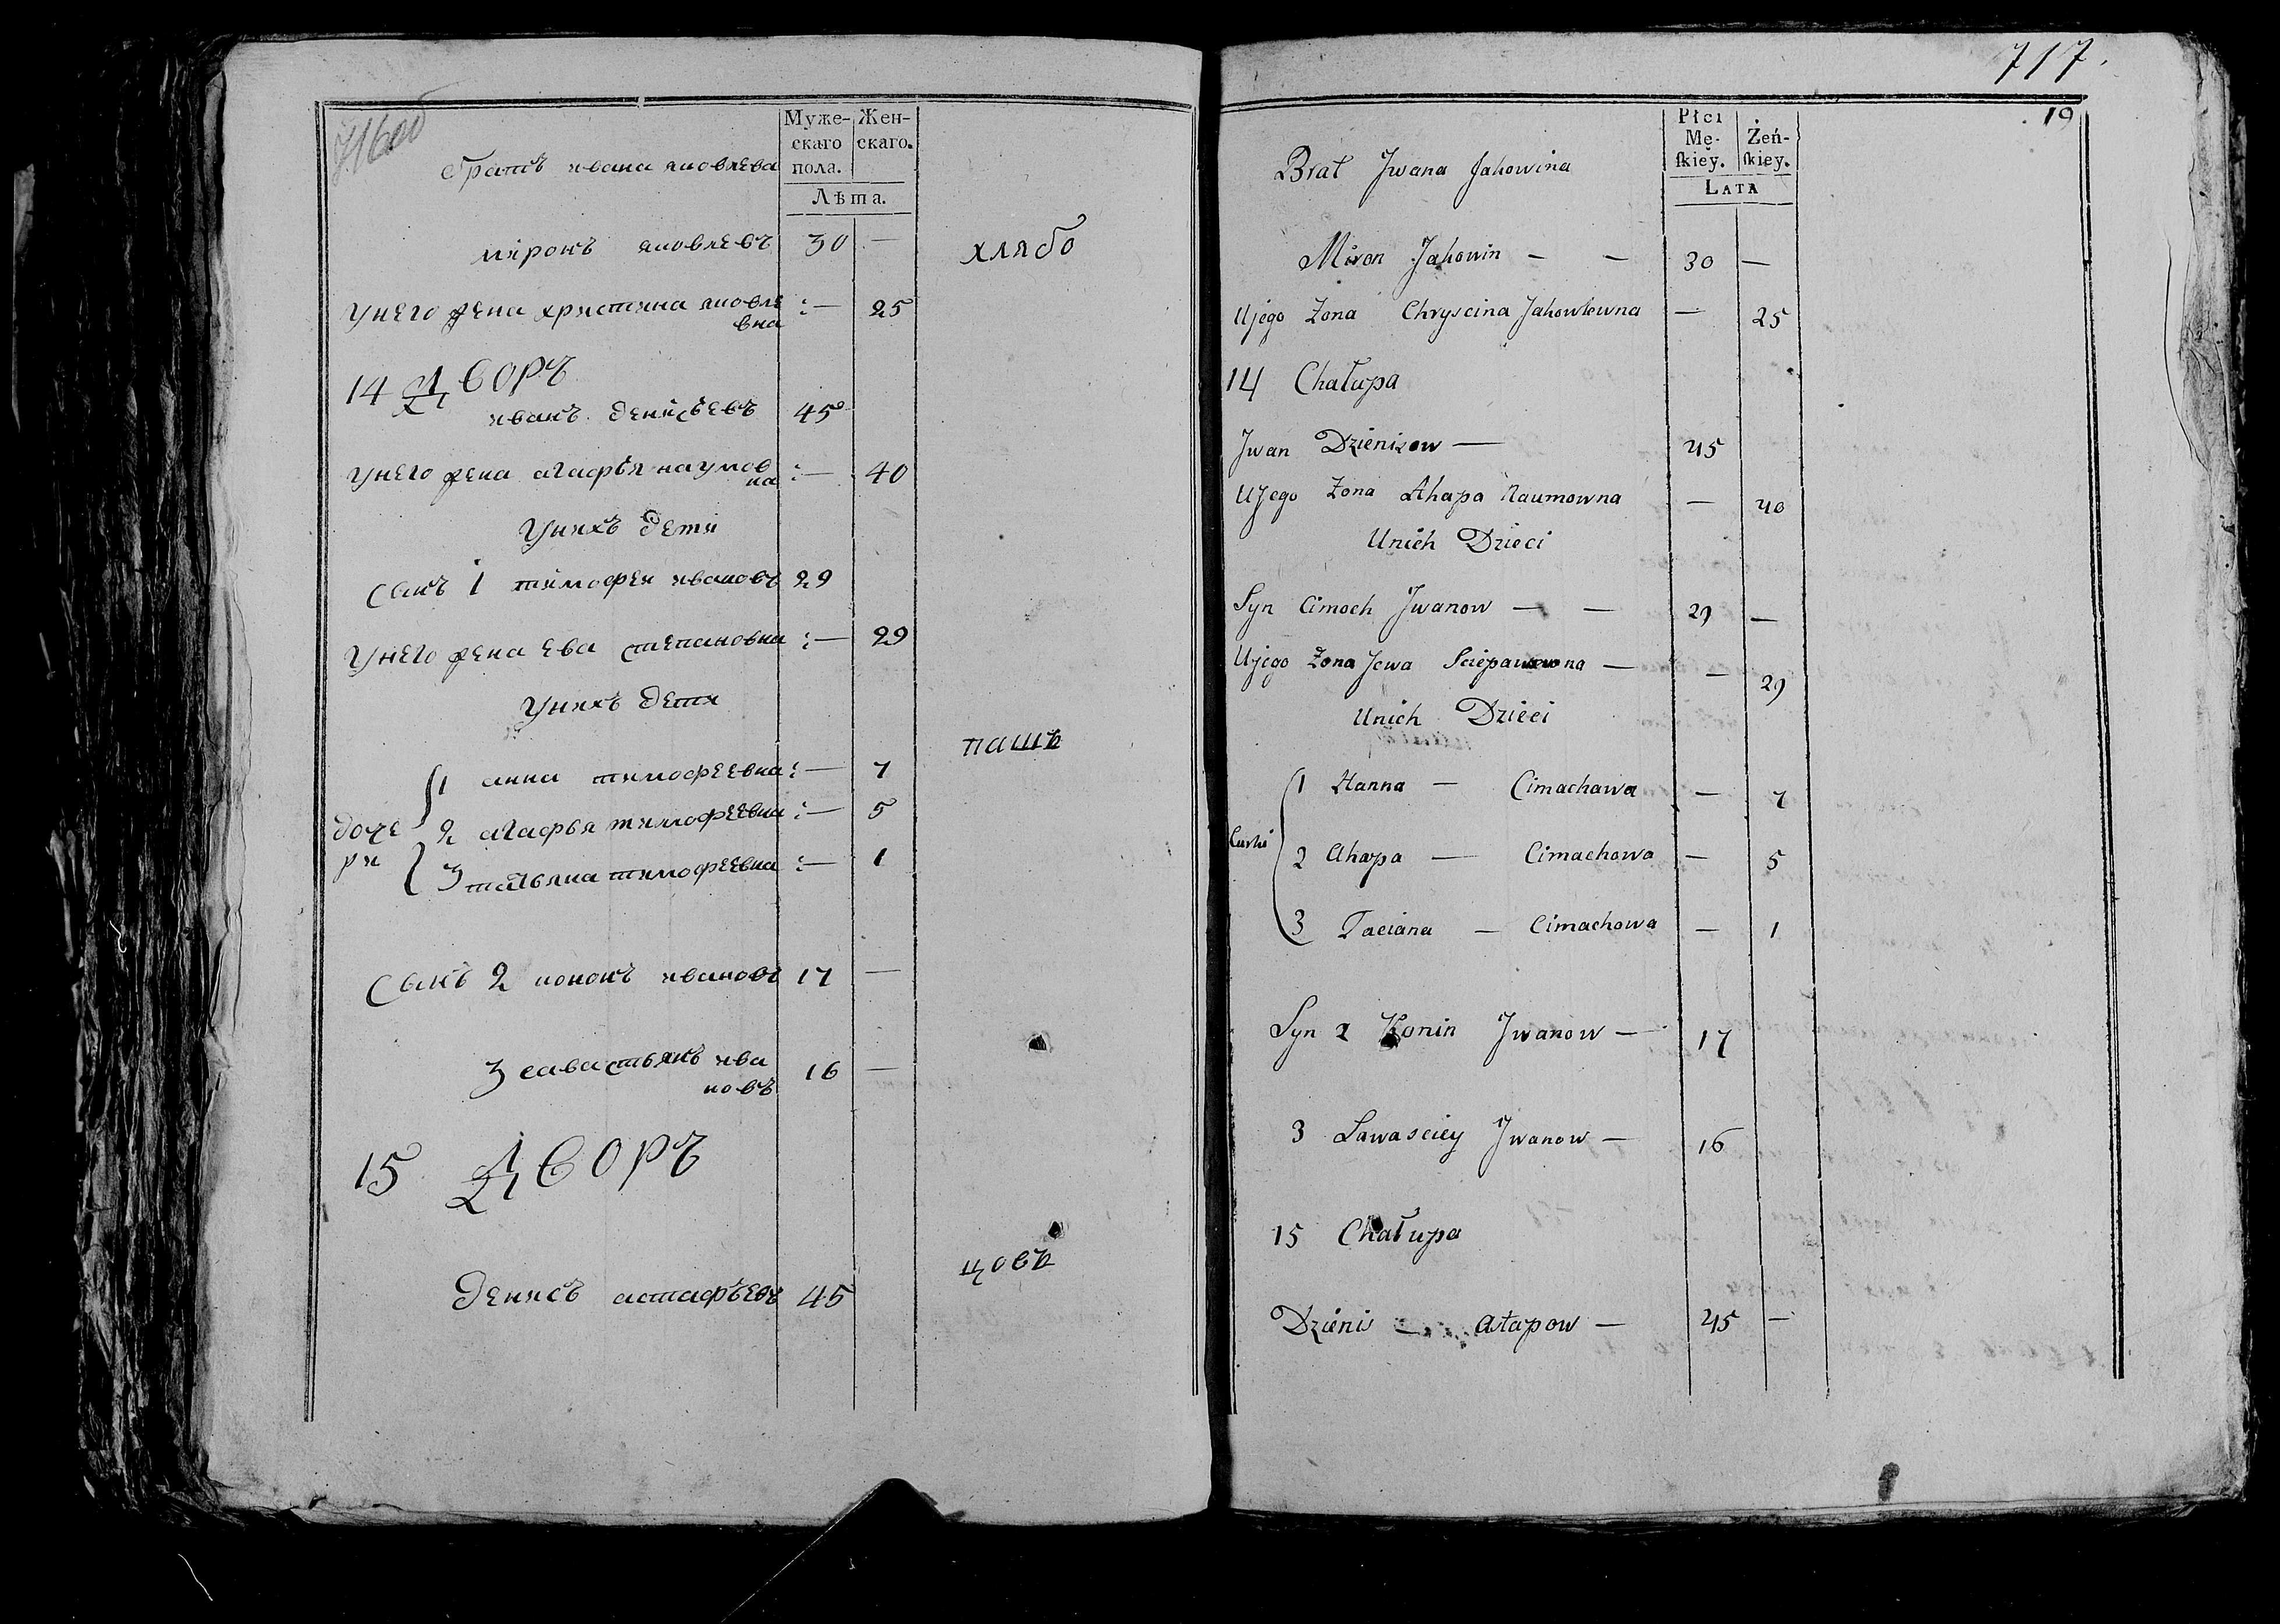 716об
Муже- Жен-
скаго скаго.
пола.
Лѣта.
братъ ивана яковлева
миронъ яковлевъ 30 —
хлябо
унего жена христина яковле :— 25
вна
14 Дворъ
иванъ денисьевъ 45
унего жена агафья наумов :— 40
на
унихъ дети
сынъ 1 тимофеи ивановъ 29
унего жена ева степановна :— 29
унихъ дети
пашъ
1 анна тимофеевна :— 7
доче 2 агафья тимофеевна :— 5
ри 3 татьяна тимофеевна :— 1
сынъ 2 кононъ ивановъ 17 —
3 савастьянъ ива 16 —
новъ
15 Дворъ
цовъ
денисъ астафьевъ 45
717.
19
Płci
Mę- Żeń-
skiey. skiey.
LATA
Brat Jwana Jakowina
Miron Jakowin — — 30 —
Ujego Zona Chryscina Jakowlewna — 25
14 Chałupa
Jwan Dzienisow — 45
Ujego Zona Ahapa Naumowna — 40
Unich Dzieci
Syn Cimoch Jwanow — — 29 —
Ujego Zona Jewa Sciepanowna — — 29
Unich Dzieci
1 Hanna — Cimachawa — 7
Curki
2 Ahapa — Cimachowa — 5
3 Taciana — Cimachowa — 1
Syn 2 Konin Jwanow — 17
3 Sawasciey Jwanow — 16
15 Chałupa
Dzienis — Astapow — 45 —